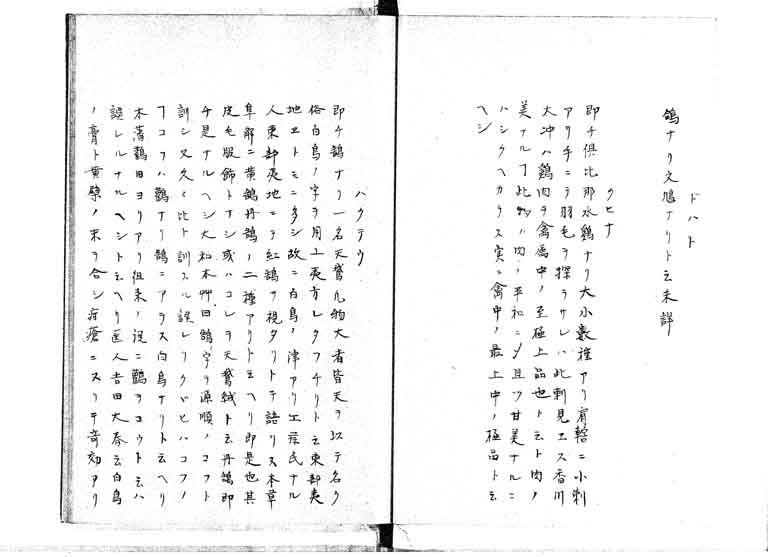 ドハト
鴿ナリ又鳩ナリト云未詳
クヒナ
即チ倶比那水鶏ナリ大小数種アリ肩轄ニ小刺
アリ手ニテ羽毛ヲ探ラサレハ此刺見エス香川
大冲ハ鶏肉ヲ禽属中ノ至極上品也ト云ト肉ノ
美ナルヿ此物ノ肉ノ平和ニ〆且ツ甘美ナルニ
ハシクヘカラス実ニ禽中ノ最上中ノ極品ト云
ヘシ
ハクテウ
即チ鵠ナリ一名天鵞凡物大者皆天ヲ以テ名ク
俗白鳥ノ字ヲ用ユ夷方レタフチリト云東部夷
地エトモニ多シ故ニ白鳥ノ津アリエ蕬民ナル
人東部夷地ニテ紅鵠ヲ視タリトテ語リス本草
皐解ニ黄鵠丹鵠ノ二種アリト云ヘリ即是也其
皮毛服飾トナシ或ハコレヲ天鵞絨ト云丹鵠即
チ是ナルヘシ大和本艸曰鵠字ヲ源順ノコフト
訓シ又久々比ト訓スル誤レリクヾヒハコフノ
ヿコフハ鸛ナリ鵠ニアラス白鳥ナリト云ヘリ
本藩鸛田ヨリアリ徂来ノ説ニ鸛ヲコウト云ハ
誤レルナルヘシト云ヘリ医人吉田大春云白鳥
ノ膏ト黄檗ノ末ヲ合シ疳瘡ニスリテ奇効アリ